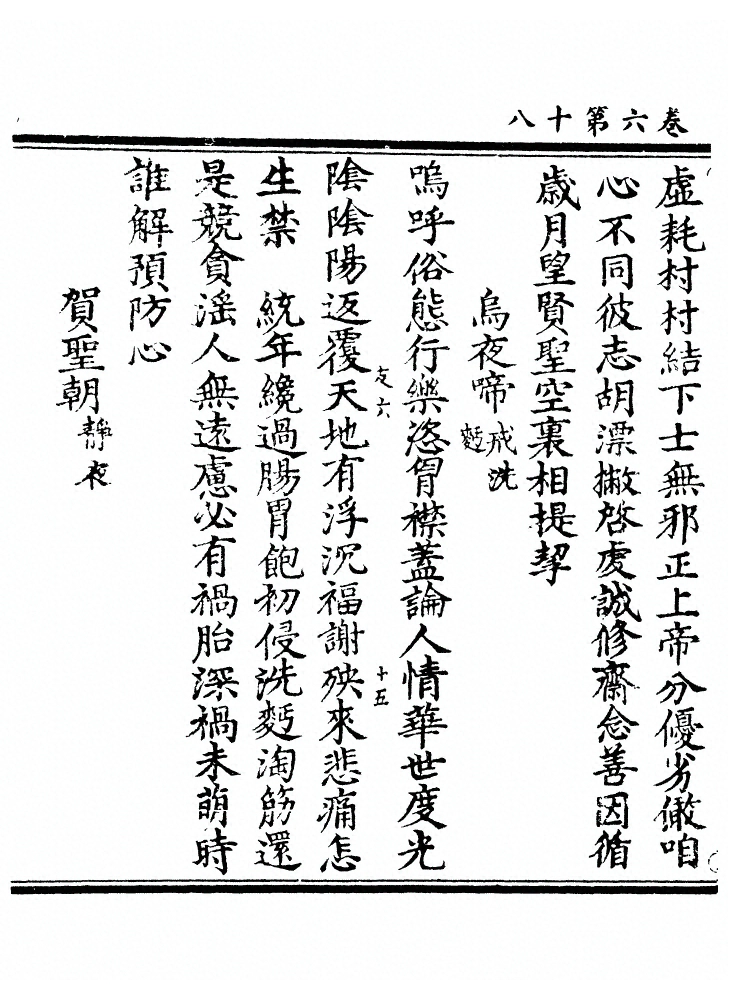 卷六第十八
虛耗村村結下士無邪正上帝分優劣儆咱
心不同彼志胡漂撇啓虔誠修齋念善因循
歲月望賢聖空裏相提挈
烏夜啼戒洗麪
嗚呼俗態行樂恣胷襟蓋論人情華世度光
陰陰陽返覆天地有浮沉福謝殃來悲痛怎
友六
十五
生禁 統年纔過腸胃飽初侵洗麪淘筋還
是競貪滛人無遠慮必有禍胎深禍未萌時
誰解預防心
賀聖朝靜夜